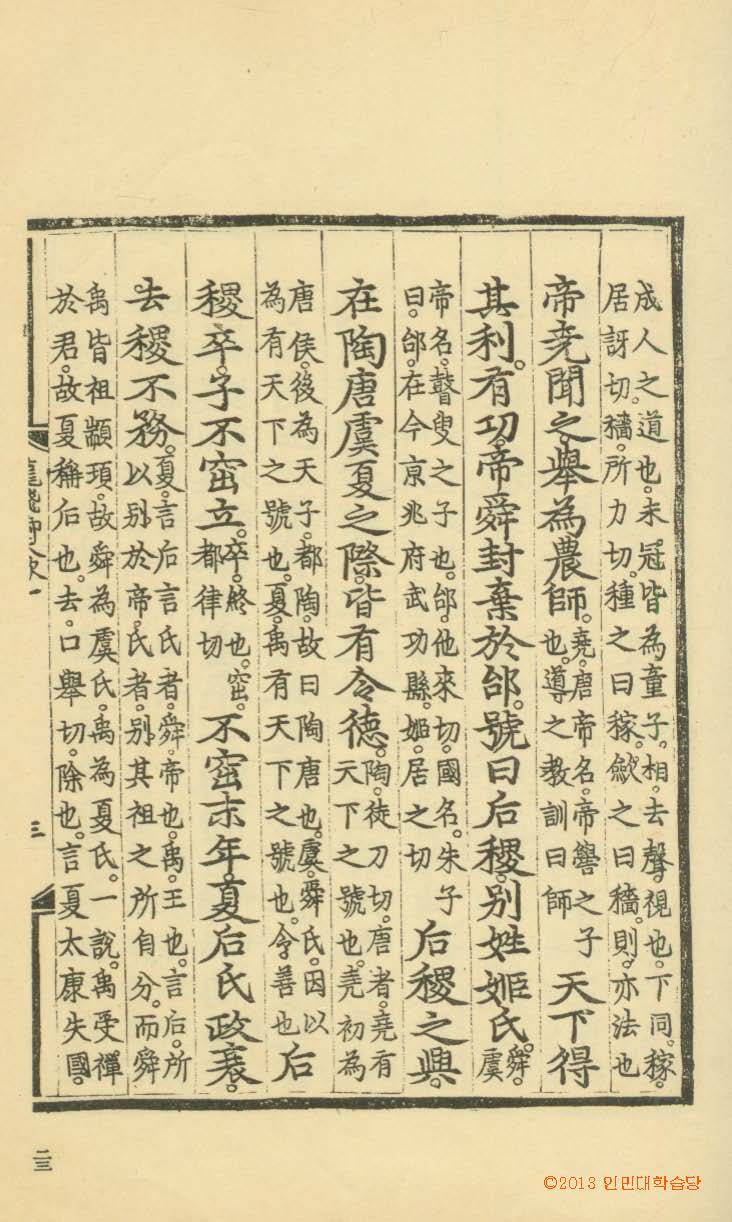 成人之道也。未冠皆為童子。相。去聲視也。下同。稼。
居訝切。穡。所力切。種之曰稼。斂之曰穡。則。亦法也
帝堯聞之。舉為農師。堯。唐帝名。帝嚳之子也。導之教訓曰師天下得
其利。有功。帝舜封棄於邰。號曰后稷。別姓姬氏。舜。虞
帝名。瞽叟之子也。邰。他來切。國名。朱子曰。邰。在今京兆府武功縣。姬。居之切后稷之興。
在陶唐虞夏之際。皆有令德。陶。徒刀切。唐者。堯有天下之號也。堯初為
唐侯。後為天子。都陶。故曰陶唐也。虞。舜氏。因以為有天下之號也。夏。禹有天下之號也。令善也后
稷卒。子不窋立。卒。終也。窋。都律切不窋末年。夏后氏政衰。
去稷不務。夏。言后言氏者。舜。帝也。禹。王也。言后。所以別於帝。氏者。別其祖之所自分。而舜
禹皆祖顓頊。故舜為虞氏。禹為夏氏。一說。禹受禪
於君。故夏稱后也。去。口舉切。除也。言夏太康失國。
三
二三
©2013 인민대학습당